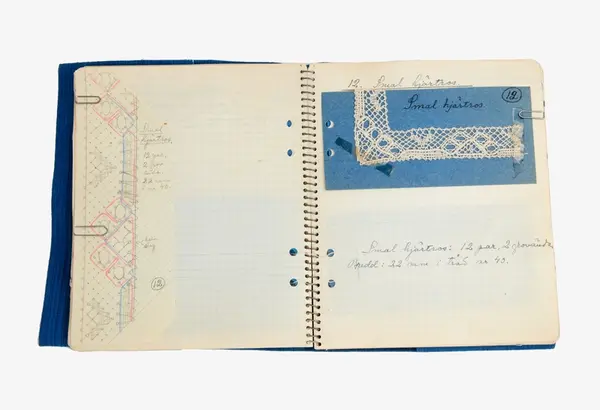 Smal
hjärtros,
12 par
22 mm
nr 40.
12
12. Smal hjärtros
12
Smal hjärtros
Smal hjärtros: 12 par, 2
Bredd: 22 mm i tråd nr 40.